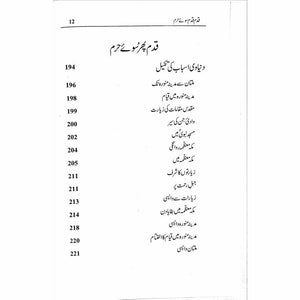 قدم قدم سوئے حرم 12
قدم پھر سُوئے حرم
دنیاوی اسباب کی تکمیل 194
ملتان سے مدینہ منورہ تک 196
مدینہ منورہ میں قیام 198
مقدس مقامات کی زیارت 199
وادیٔ جن کی سیر 200
مسجد نبویؐ میں 202
مکہ معظمہ روانگی 204
مکہ معظمہ میں 205
زیارتوں کا شرف 211
جبل رحمت پر 211
زیارات سے واپسی 213
مکہ معظمہ میں چھٹا دن 214
مدینہ منورہ واپسی 218
مدینہ منورہ میں قیام کا اختتام 220
ملتان واپسی 221